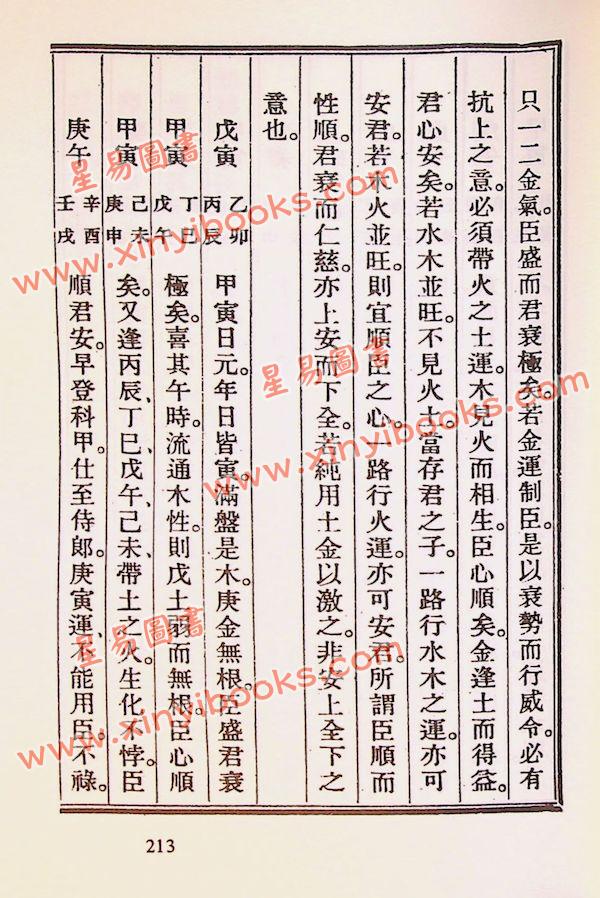 只一二金氣。臣盛而君衰極矣。若金運制臣。是以衰勢而行威令。必有
抗上之意。必須帶火之土運。木見火而相生。臣心順矣。金逢土而得益。
君心安矣。若水木並旺。不見火土。當存君之子。一路行水木之運。亦可
安君。若木火並旺。則宜順臣之心。一路行火運。亦可安君。所謂臣順而
性順。君衰而仁慈。亦上安而下全。若純用土金以激之。非安上全下之
意也。
戊寅 乙卯 丙辰 甲寅日元。年日皆寅。滿盤是木。庚金無根。臣盛君衰
甲寅 丁巳 戊午 極矣。喜其午時。流通木性。則戊土弱而無根。臣心順
甲寅 己未 庚申 矣。又逢丙辰、丁巳、戊午、己未、帶土之火。生化不悖。臣
庚午 辛酉 壬戌 順君安。早登科甲。仕至侍郎。庚寅運、不能用臣。不祿。
213
星易圖書
www.xinyibooks.com
星易圖書
www.xinyibooks.com
星易圖書
www.xinyibooks.com